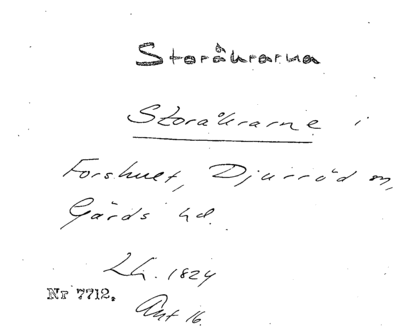 Storåkrarna
Storåkrarne i
Forshult, Djurröd sn,
Gärds hd.
Lh. 1824
Nr 7712.
Akt 16.